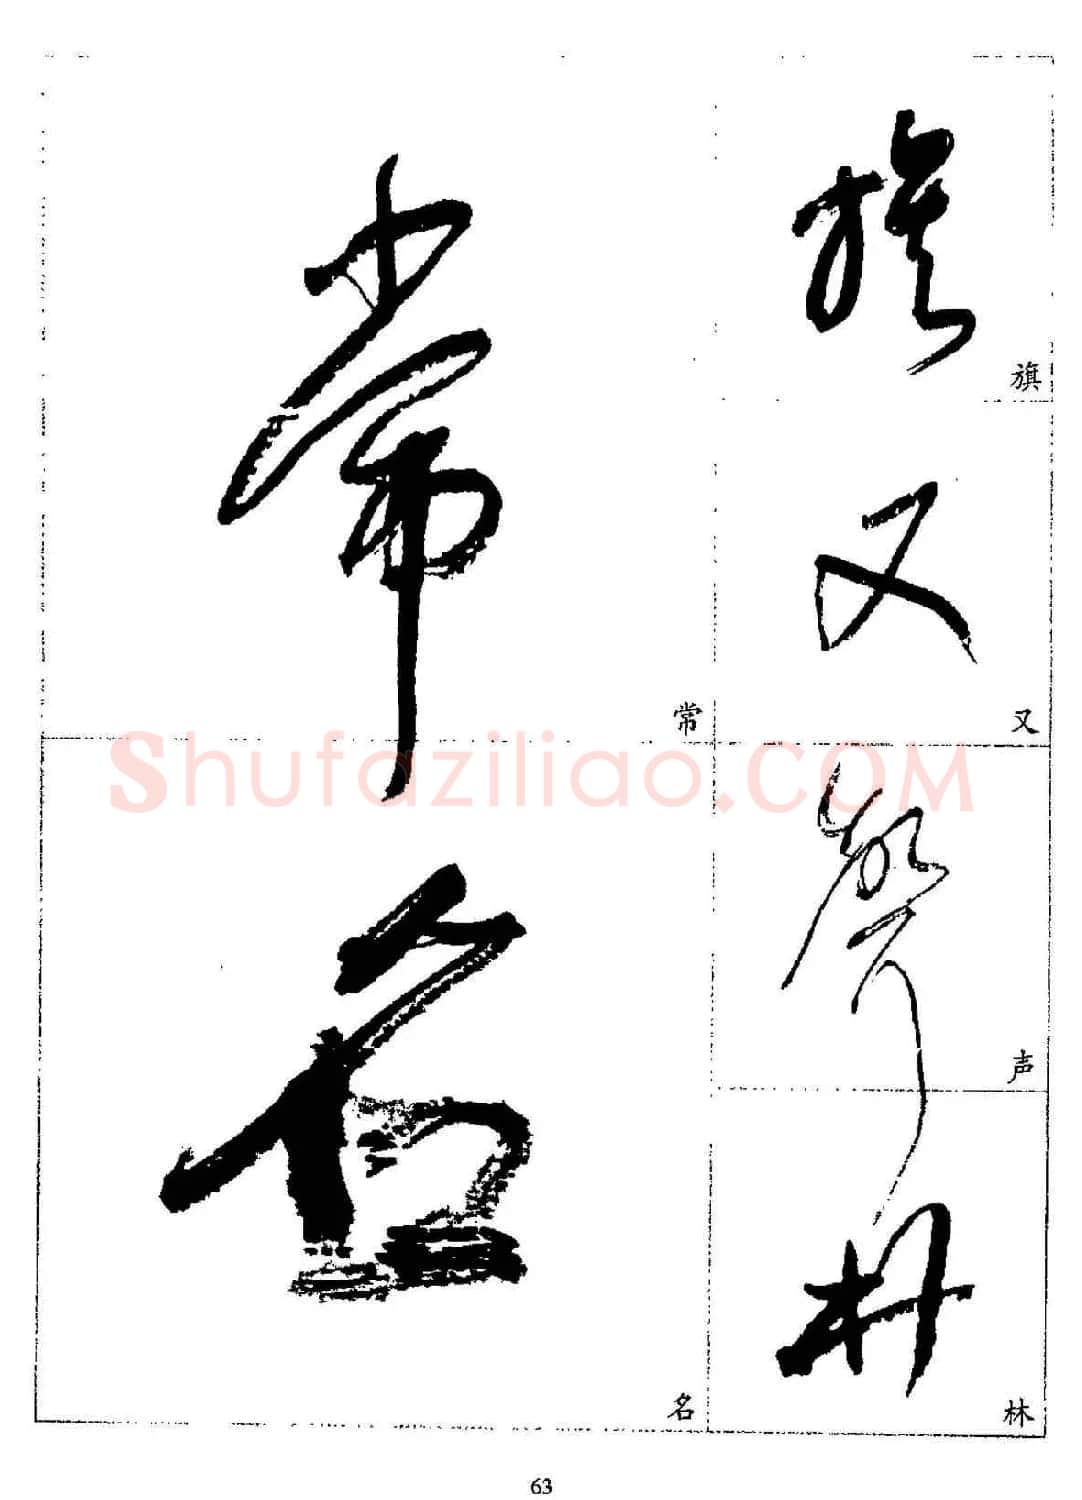 旗
旗
又
又
声
声
林
林
常
常
名
名
Shufaziliao.COM
63